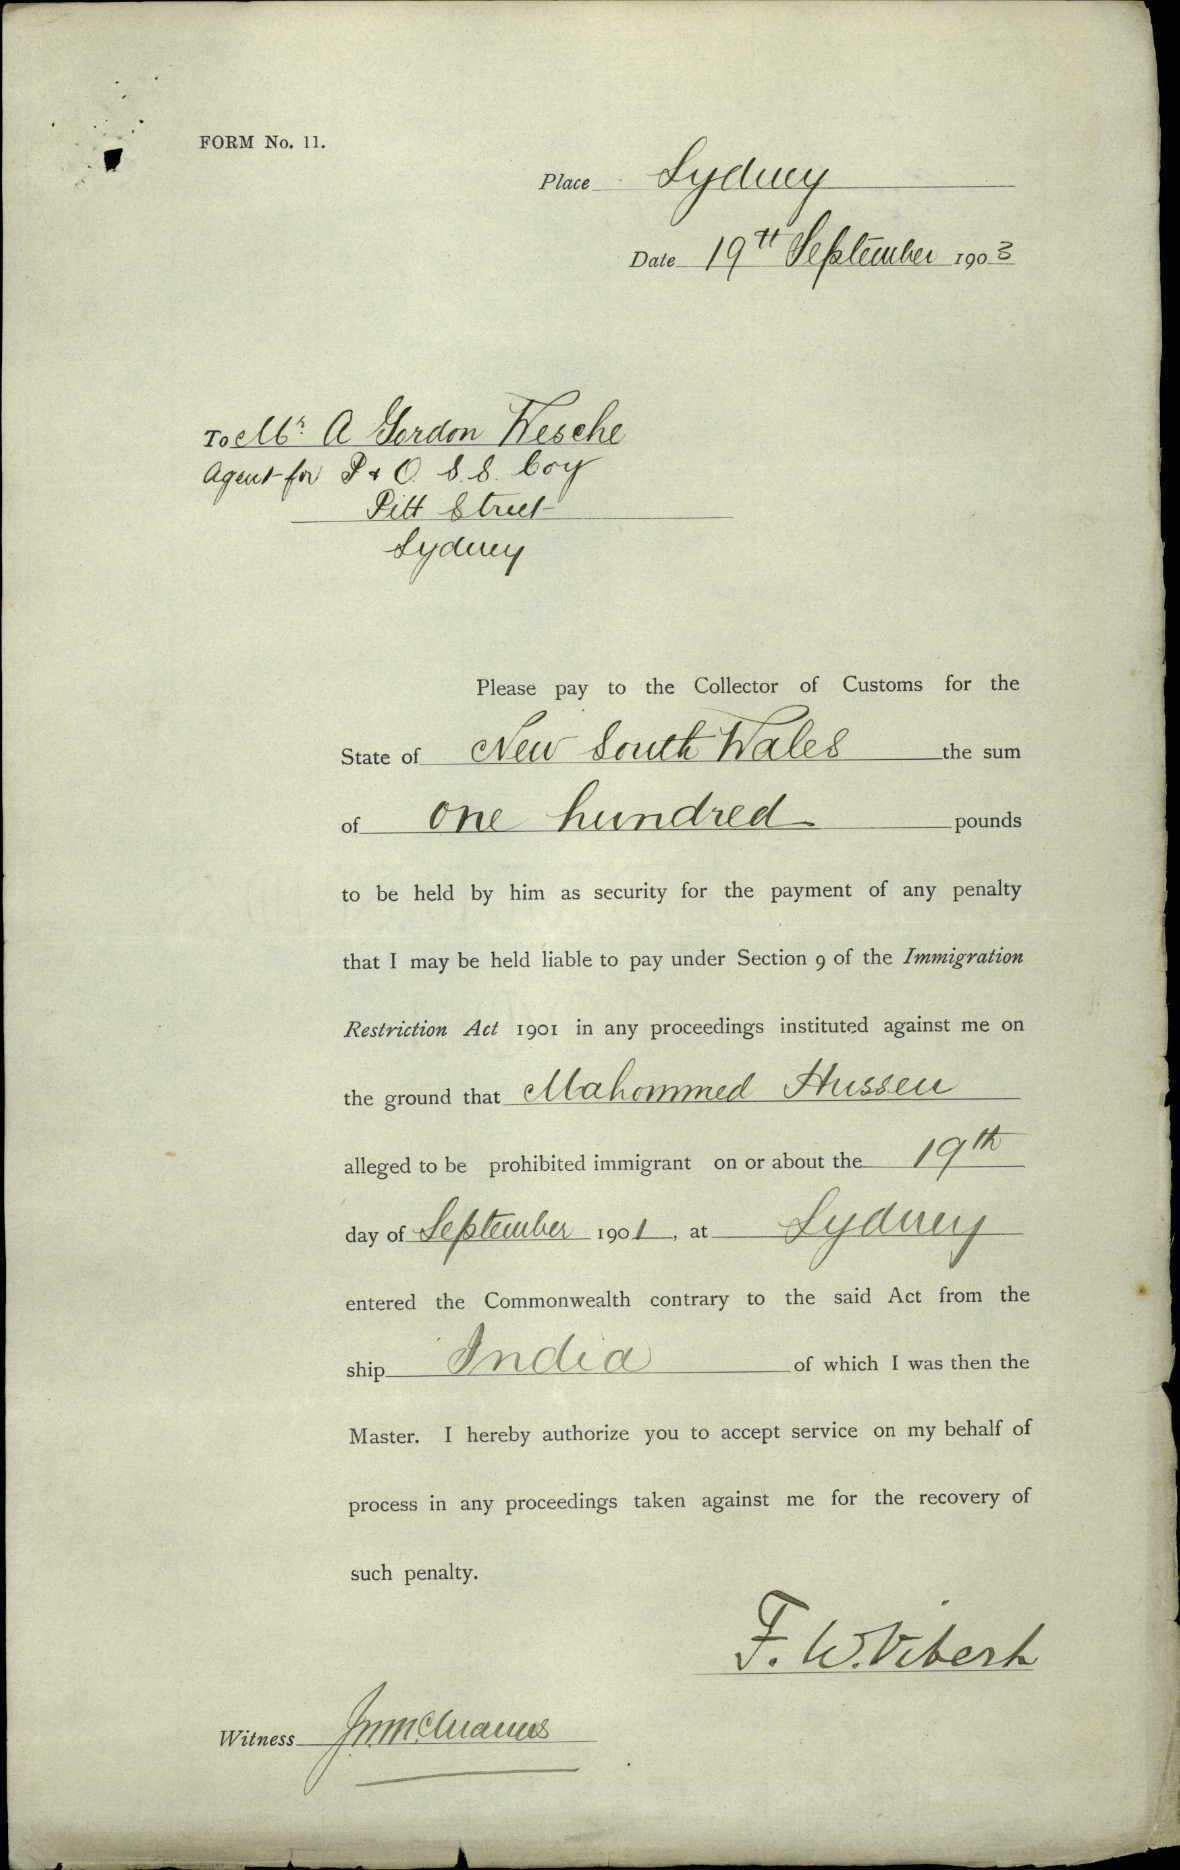 FORM No. 11.
Place Sydney
Date 19th September 1903
To Mr. A Gordon Wesche
Agent for P & O. S.S. Coy
Pitt Street
Sydney
Please pay to the Collector of Customs for the
State of New South Wales the sum
of one hundred pounds
to be held by him as security for the payment of any penalty
that I may be held liable to pay under Section 9 of the Immigration
Restriction Act 1901 in any proceedings instituted against me on
the ground that Mahommed Hussen
alleged to be prohibited immigrant on or about the 19th
day of September 1901, at Sydney
entered the Commonwealth contrary to the said Act from the
ship India of which I was then the
Master. I hereby authorize you to accept service on my behalf of
process in any proceedings taken against me for the recovery of
such penalty.
F. W. Vibert
Witness